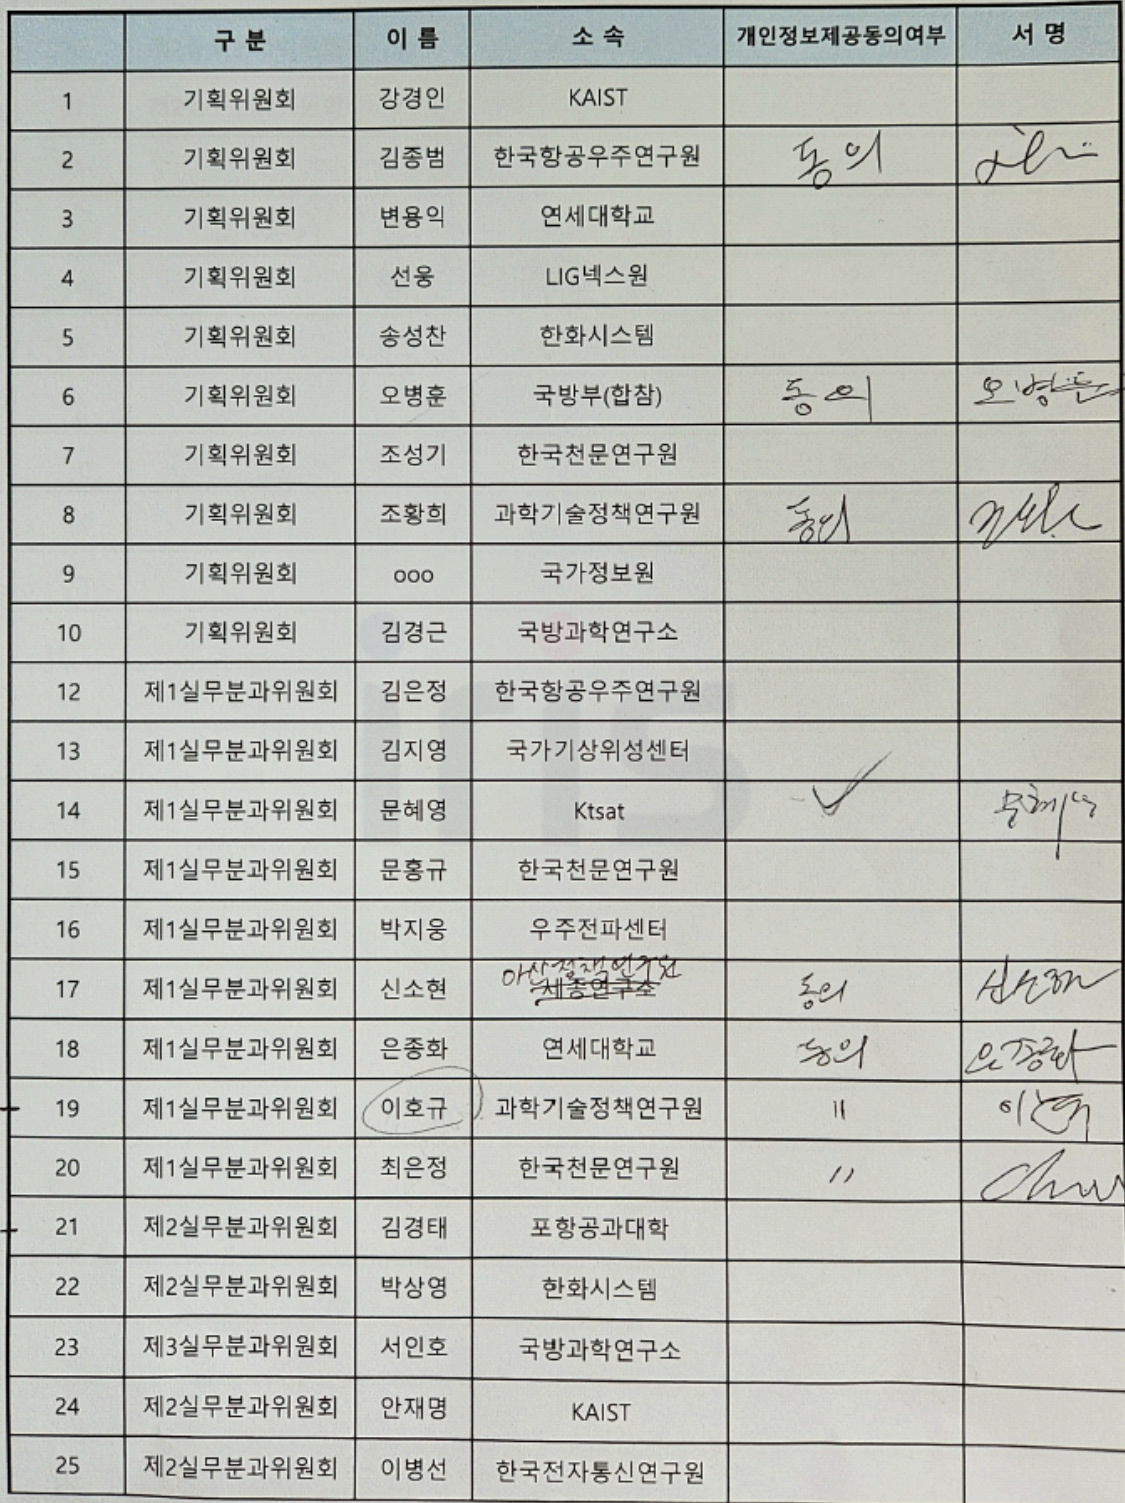 구분 이름 소속 개인정보제공동의여부 서명
1 기획위원회 강경인 KAIST
2 기획위원회 김종범 한국항공우주연구원 동의
3 기획위원회 변용익 연세대학교
4 기획위원회 선웅 LIG넥스원
5 기획위원회 송성찬 한화시스템
6 기획위원회 오병훈 국방부(합참) 동의 오병훈
7 기획위원회 조성기 한국천문연구원
8 기획위원회 조황희 과학기술정책연구원 동의
9 기획위원회 ooo 국가정보원
10 기획위원회 김경근 국방과학연구소
12 제1실무분과위원회 김은정 한국항공우주연구원
13 제1실무분과위원회 김지영 국가기상위성센터
14 제1실무분과위원회 문혜영 Ktsat 문혜영
15 제1실무분과위원회 문홍규 한국천문연구원
16 제1실무분과위원회 박지웅 우주전파센터
아산정책연구원
17 제1실무분과위원회 신소현 세종연구소 동의 신소현
18 제1실무분과위원회 은종화 연세대학교 동의 은종화
19 제1실무분과위원회 이호규 과학기술정책연구원 〃 이호규
20 제1실무분과위원회 최은정 한국천문연구원 〃
21 제2실무분과위원회 김경태 포항공과대학
22 제2실무분과위원회 박상영 한화시스템
23 제3실무분과위원회 서인호 국방과학연구소
24 제2실무분과위원회 안재명 KAIST
25 제2실무분과위원회 이병선 한국전자통신연구원
iris